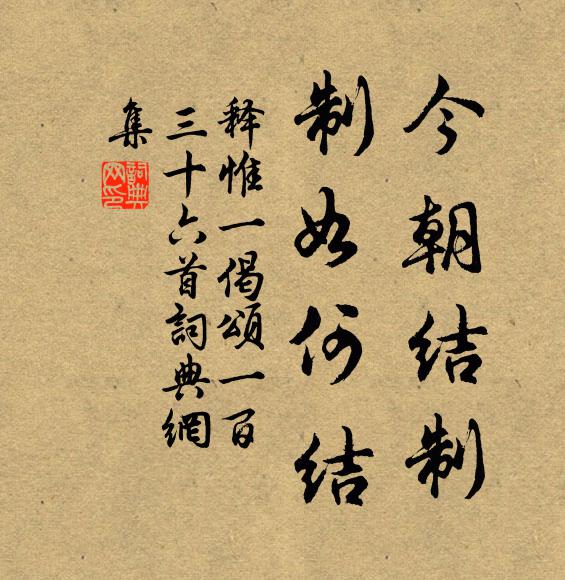 今朝结制
制如何结
释惟一偈颂一百
三十六首詞典網
集
詞典
网印